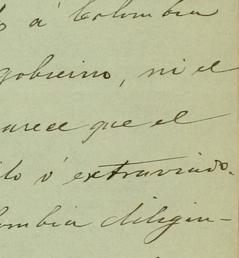 á Colombia
gobierno, ni el
arece que el
do ó extraviado.
ombia diligen-